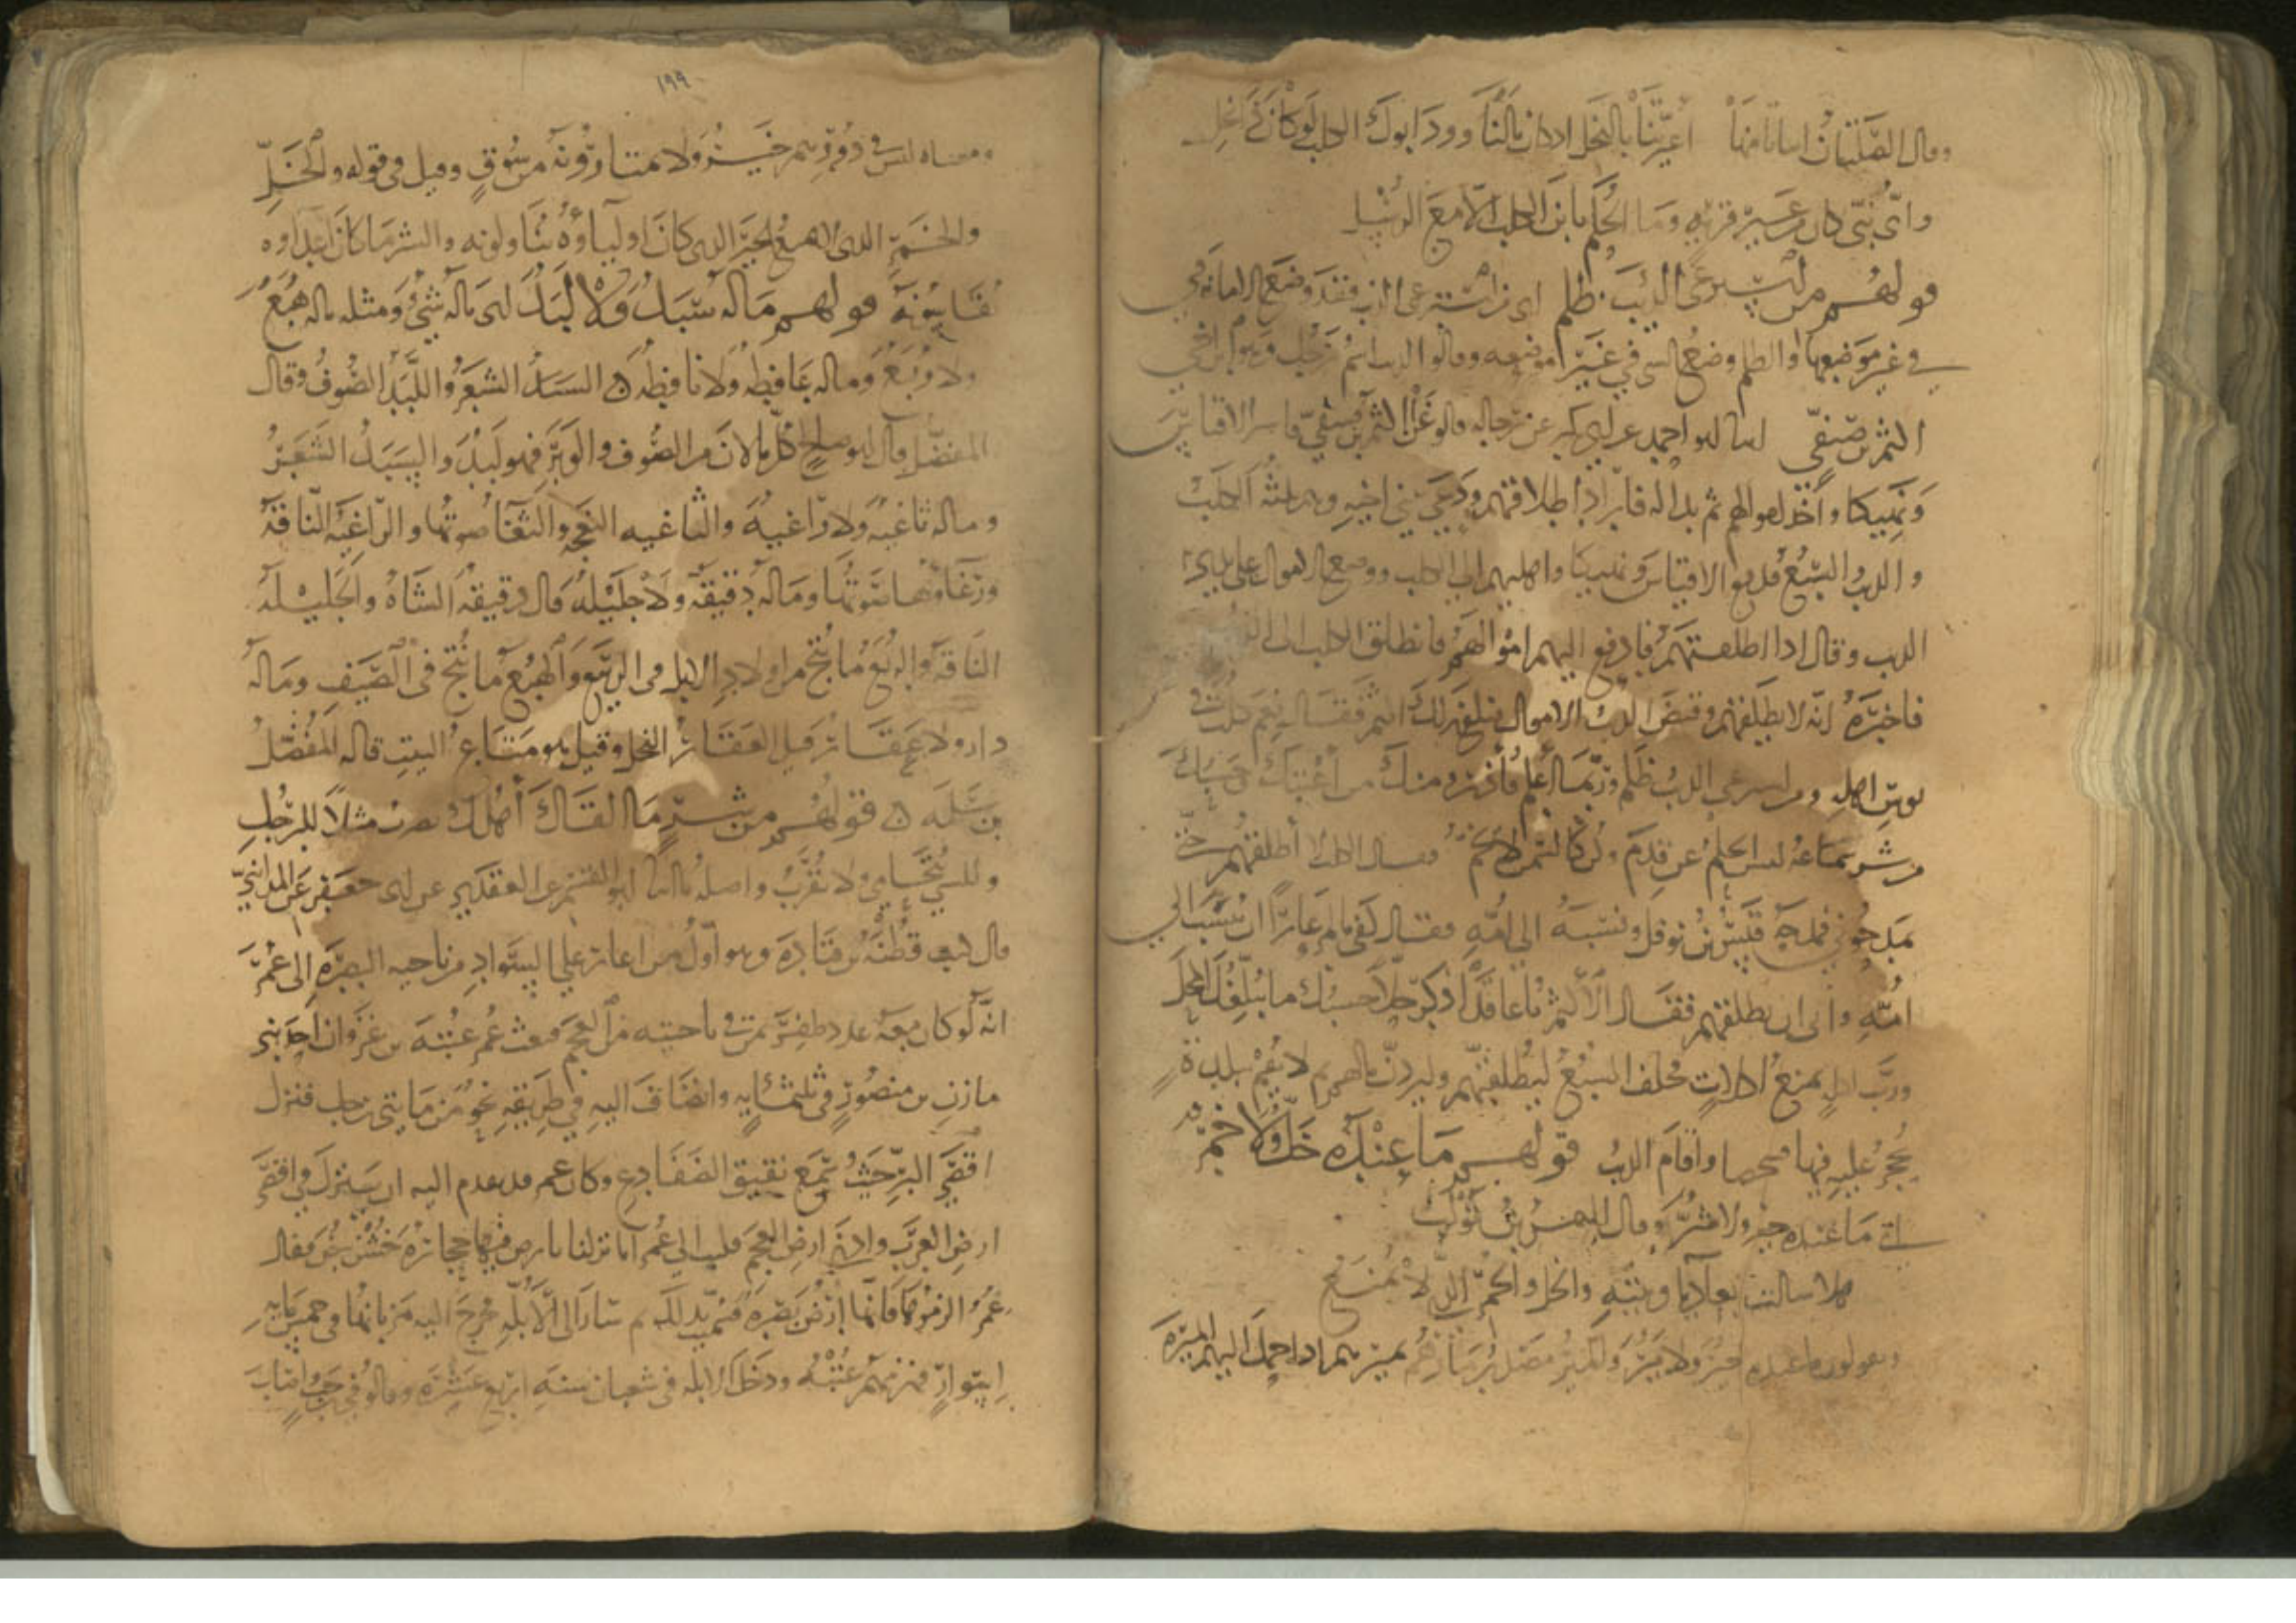 وقال الصلتان ابياتا منها أعيرتنا بالنخل اذ كان مالنا وود ابوك الكلب لو كان ذا نخل
واى نبى كان غير قريه وما الحكم يا ابن الكلب الا مع الرسل
قولهم من استرعى الذئب ظلم اى من استرعى الذئب فقد وضع الامانة
في غير موضعها والظلم وضع الشى في غير موضعه وقالوا الذئب اسم رجل وهو ابن اخى
اكثم بن صيفي ابو احمد عن ابى بكر عن رجاله قالوا غزا اكثم بن صيفي فاسر الاقياس
ونهيكا واخذ اموالهم ثم بدا له فاراد اطلاقهم ودعى بنى اخيه وهم ثلثه الكلب
والذئب والسبع فدفع الاقياس ونهيكا واهليهم الى الكلب ووضع الاموال على يدي
الذئب وقال اذا اطلقتهم فادفع اليهم اموالهم فانطلق الكلب الى
فاخبره انه لا يطلقهم وقبض الذئب الاموال فبلغ ذلك اكثم فقال نعم كلب في
بوس اهله ومن استرعى الذئب ظلم وربما أعلم فأذر منك من أعتبك وحسبك
من شر سماعه ليس الحلم عن قدم وكن كالسمن لا يخم فقال الكلب لا أطلقهم حتى
يمدحوني فمدحه قيس بن نوفل ونسبه الى امه فقال كفى بالمرء عارا ان ينسب الى
امه وابى ان يطلقهم فقال اكثم يا عاقد اذكر حلا حسبك ما يبلغك المحل
ورب اكلة تمنع اكلات فحلف السبع ليطلقنهم وليردن مالهم ثم لا يقم ببلدة
يحجر عليه فيها واقام الذئب قولهم ما عنده خل ولا خمر
اى ما عنده خير ولا شر وقال النمر بن تولب
هلا سالت بعاديا وبيته والخل والخمر التى لا تمنع
ويقولون ما عنده خير ولا مير والمير مصدر مارهم يميرهم اذا حمل اليهم الميرة
١٩٩
ومعناه ليس في دورهم خير ولا يمتارونه من سوق وقيل في قوله والخل
والخمر الذى لا يمنع الخير الذى كان اولياؤه يتناولونه والشر ما كان اعداوه
يقاسونه قولهم ماله سبد ولا لبد اى ماله شئ ومثله ماله هبع
ولا ربع وماله عافطه ولا نافطه السبد الشعر واللبد الصوف وقال
المفضل قال ابو صالح كل ما لان من الصوف والوبر فهو لبد والسبد الشعر
وماله ثاغيه ولا راغيه والثاغيه النعجه والثغا صوتها والراغيه الناقة
ورغاوها صوتها وماله دقيقة ولا جليله قال دقيقه الشاه والجليله
الناقه والربع ما نتج من اولاد الابل فى الربيع والهبع ما نتج فى الصيف وماله
دار ولا عقار قيل العقار النخل وقيل هو متاع البيت قاله المفضل
بن سلمه قولهم من شر ما القاك أهلك يضرب مثلا للرجل
وللشي يتحامى ولا يقرب واصله ابو القسم عن العقدي عن ابى جعفر عن المدائني
قال كتب قطبه بن قتاده وهو اول من اغار على السواد من ناحيه البصره الى عمر
انه لو كان معه عدد ظفر بمن في ناحيته من العجم فبعث عمر عتبه بن غزوان احد بنى
مازن بن منصور في ثلثمائه وانضاف اليه في طريقه نحو من مايتى رجل فنزل
اقصى البر حيث سمع نقيق الضفادع وكان عمر قد تقدم اليه ان ينزل في اقصى
ارض العرب وادنى ارض العجم فكتب الى عمر انا نزلنا بارض فيها حجاره خشن بيض فقال
عمر الزموها فانها ارض بصره فسميت بذلك ثم سار الى الابله فخرج اليه مرزبانها فى خمس مايه
اسوار فهزمهم عتبه ودخل الابله فى شعبان سنه اربع عشره وقالو في رجب اصاب